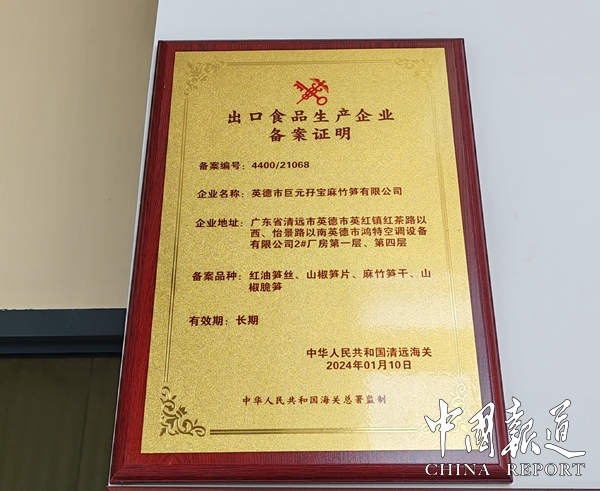 出口食品生产企业
备案证明
备案编号：4400/21068
企业名称：英德市巨元孖宝麻竹笋有限公司
企业地址：广东省清远市英德市英红镇红茶路以
西、怡景路以南英德市鸿特空调设备
有限公司2#厂房第一层、第四层
备案品种：红油笋丝、山椒笋片、麻竹笋干、山
椒脆笋
有效期：长期
中华人民共和国清远海关
2024年01月10日
中华人民共和国海关总署监制
中国报道
CHINA REPORT